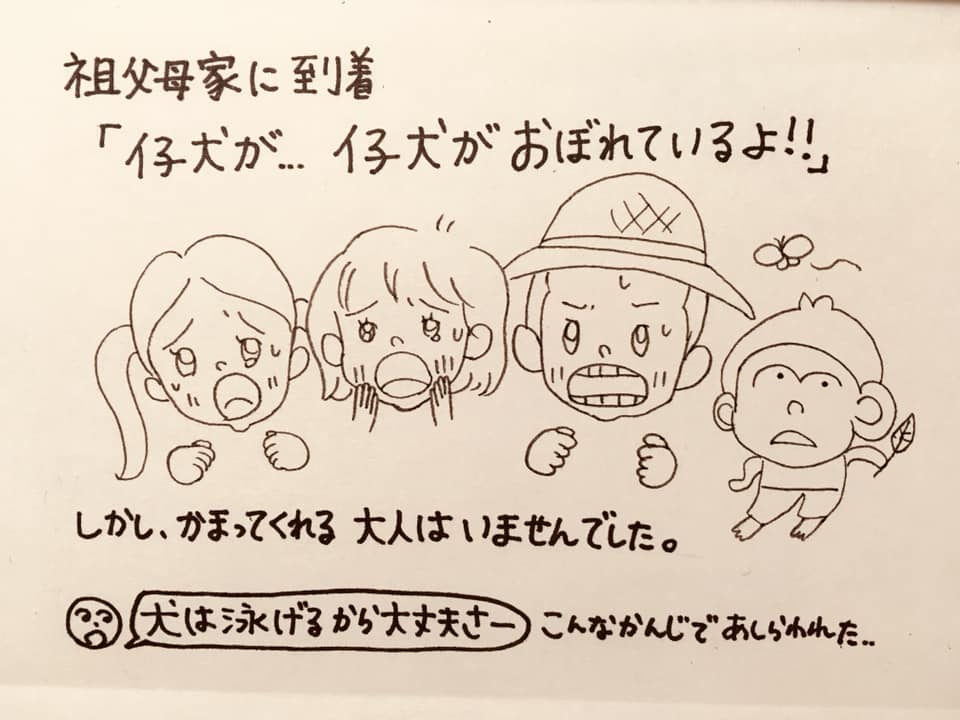 祖父母家に到着
「仔犬が… 仔犬がおぼれているよ!!」
しかし、かまってくれる 大人はいませんでした。
犬は泳げるから大丈夫さー こんなかんじであしらわれた..